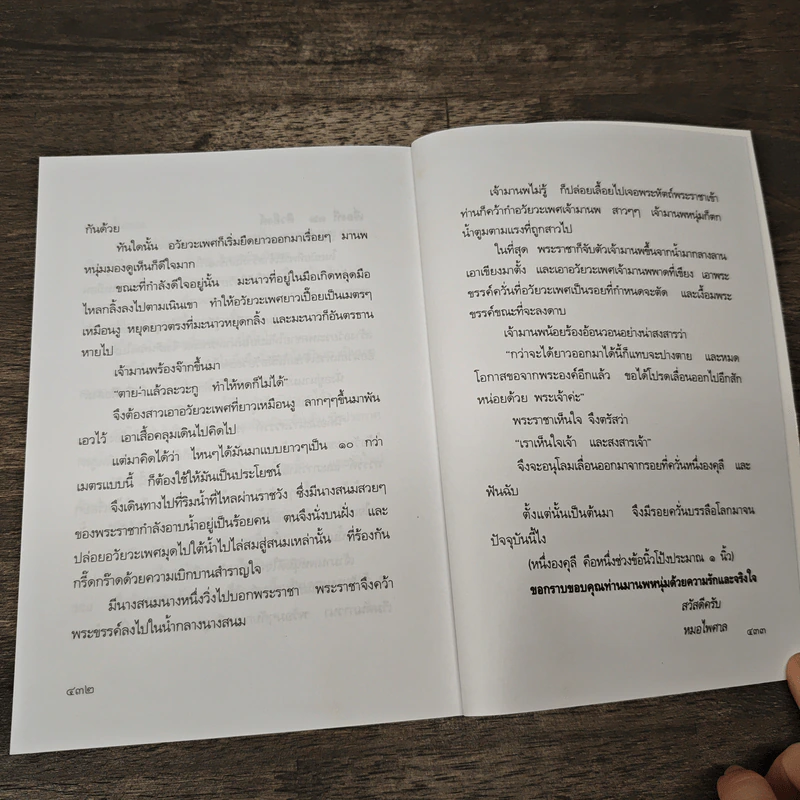 กันด้วย
ทันใดนั้น อวัยวะเพศก็เริ่มยืดยาวออกมาเรื่อยๆ มานพ
หนุ่มมองดูเห็นก็ดีใจมาก
ขณะที่กำลังดีใจอยู่นั้น มะนาวที่อยู่ในมือเกิดหลุดมือ
ไหลกลิ้งลงไปตามเนินเขา ทำให้อวัยวะเพศยาวเปื๊อยเป็นเมตรๆ
เหมือนงู หยุดยาวตรงที่มะนาวหยุดกลิ้ง และมะนาวก็อันตรธาน
หายไป
เจ้ามานพร้องจ๊ากขึ้นมา
"ตายล่ะแล้วละวะกู ทำให้หดก็ไม่ได้"
จึงต้องสาวเอาอวัยวะเพศที่ยาวเหมือนงู ลากๆๆขึ้นมาพัน
เอวไว้ เอาเสื้อคลุมเดินไปคิดไป
แต่มาคิดได้ว่า ไหนๆได้มันมาแบบยาวๆเป็น ๑๐ กว่า
เมตรแบบนี้ ก็ต้องใช้ให้มันเป็นประโยชน์
จึงเดินทางไปที่ริมน้ำที่ไหลผ่านราชวัง ซึ่งมีนางสนมสวยๆ
ของพระราชากำลังอาบน้ำอยู่เป็นร้อยคน ตนจึงนั่งบนฝั่ง และ
ปล่อยอวัยวะเพศมุดไปใต้น้ำไปไล่สมสู่สนมเหล่านั้น ที่ร้องกัน
กรี๊ดกร๊าดด้วยความเบิกบานสำราญใจ
มีนางสนมนางหนึ่งวิ่งไปบอกพระราชา พระราชาจึงคว้า
พระขรรค์ลงไปในน้ำกลางนางสนม
๔๓๒
เจ้ามานพไม่รู้ ก็ปล่อยเลื้อยไปเจอพระหัตถ์พระราชาเข้า
ท่านก็คว้ากำอวัยวะเพศเจ้ามานพ สาวๆๆ เจ้ามานพหนุ่มก็ตก
น้ำตูมตามแรงที่ถูกสาวไป
ในที่สุด พระราชาก็จับตัวเจ้ามานพขึ้นจากน้ำมากลางลาน
เอาเขียงมาตั้ง และเอาอวัยวะเพศเจ้ามานพพาดที่เขียง เอาพระ
ขรรค์ควั่นที่อวัยวะเพศเป็นรอยที่กำหนดจะตัด และเงื้อมพระ
ขรรค์ขณะที่จะลงดาบ
เจ้ามานพน้อยร้องอ้อนวอนอย่างน่าสงสารว่า
"กว่าจะได้ยาวออกมาได้นี้ก็แทบจะปางตาย และหมด
โอกาสขอจากพระองค์อีกแล้ว ขอได้โปรดเลื่อนออกไปอีกสัก
หน่อยด้วย พระเจ้าค่ะ"
พระราชาเห็นใจ จึงตรัสว่า
"เราเห็นใจเจ้า และสงสารเจ้า"
จึงจะอนุโลมเลื่อนออกมาจากรอยที่ควั่นหนึ่งองคุลี และ
ฟันฉับ
ตั้งแต่นั้นเป็นต้นมา จึงมีรอยควั่นบรรลือโลกมาจน
ปัจจุบันนี้ไง
(หนึ่งองคุลี คือหนึ่งช่วงข้อนิ้วโป้งประมาณ ๑ นิ้ว)
ขอกราบขอบคุณท่านมานพหนุ่มด้วยความรักและจริงใจ
สวัสดีครับ
หมอไพศาล
๔๓๓